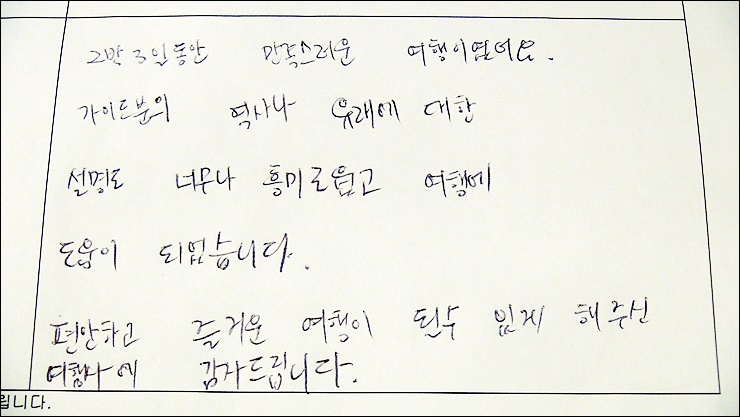 2박 3일동안 만족스러운 여행이였어요.
가이드분의 역사나 유래에 대한
설명도 너무나 흥미로웠고 여행에
도움이 되었습니다.
편안하고 즐거운 여행이 될수 있게 해주신
여행사에 감사드립니다.
립니다.